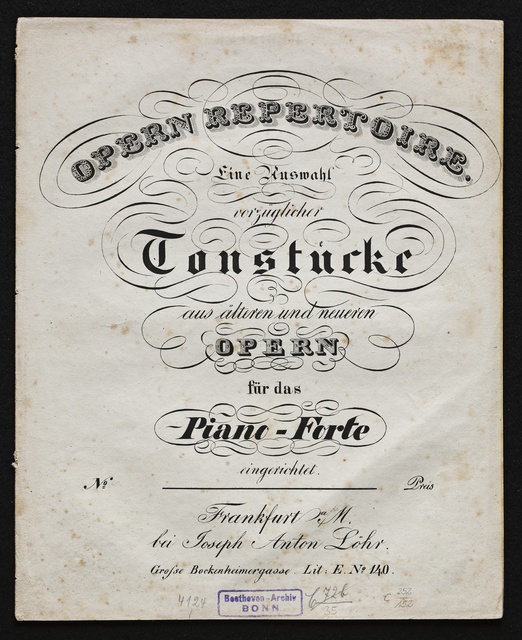 OPERN REPERTOIRE.
Eine Auswahl
vorzüglicher
Tonstücke
aus älteren und neueren
OPERN
für das
Piano-Forte
eingerichtet.
No. Preis
Frankfurt a/M.
bei Joseph Anton Löhr.
Grosse Bockenheimergasse Lit: E. No 140.
4124
Beethoven-Archiv
BONN
C 252/152